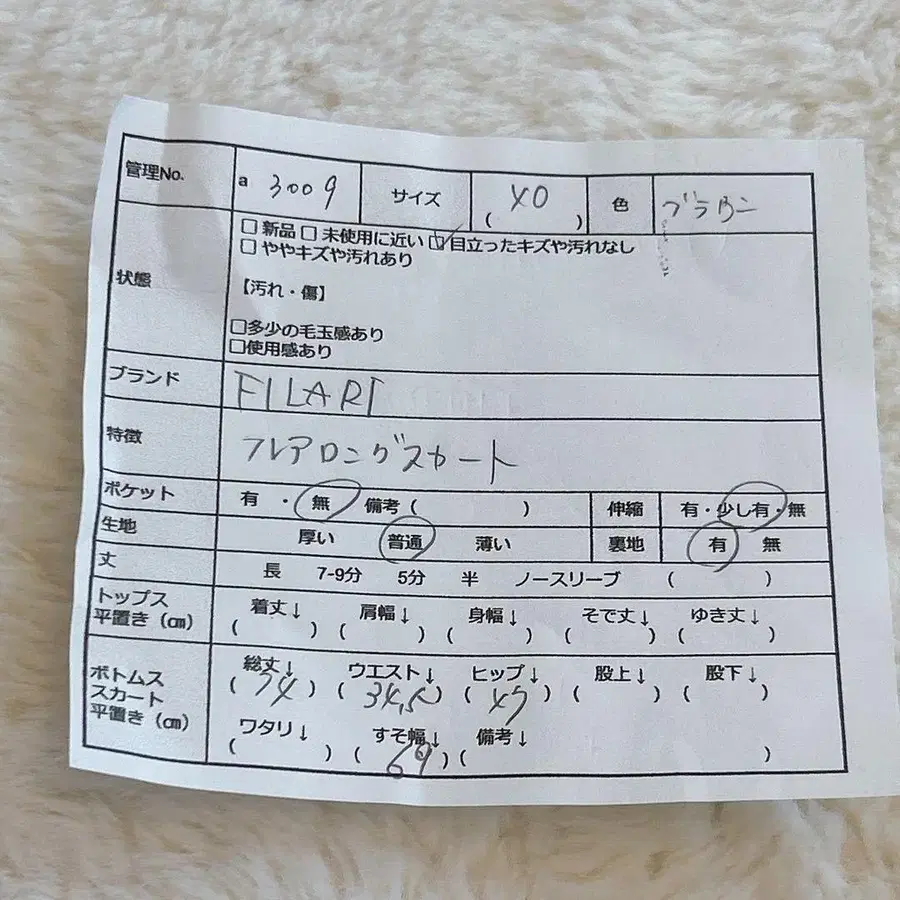 管理No. a 3009 サイズ 40 ( ) 色 ブラウン
状態 □ 新品 □ 未使用に近い ☑ 目立ったキズや汚れなし
□ ややキズや汚れあり
【汚れ・傷】
□多少の毛玉感あり
□使用感あり
ブランド FILART
特徴 フレアロングスカート
ポケット 有 ・ 無 備考 ( ) 伸縮 有・少し有・無
生地 厚い 普通 薄い 裏地 有 無
丈 長 7-9分 5分 半 ノースリーブ ( )
トップス 平置き(㎝) 着丈↓ 肩幅↓ 身幅↓ そで丈↓ ゆき丈↓
( ) ( ) ( ) ( ) ( )
ボトムス スカート 平置き(㎝) 総丈↓ ウエスト↓ ヒップ↓ 股上↓ 股下↓
(74) (34,5) (47) ( ) ( )
ワタリ↓ すそ幅↓ 備考↓
( ) (69) ( )